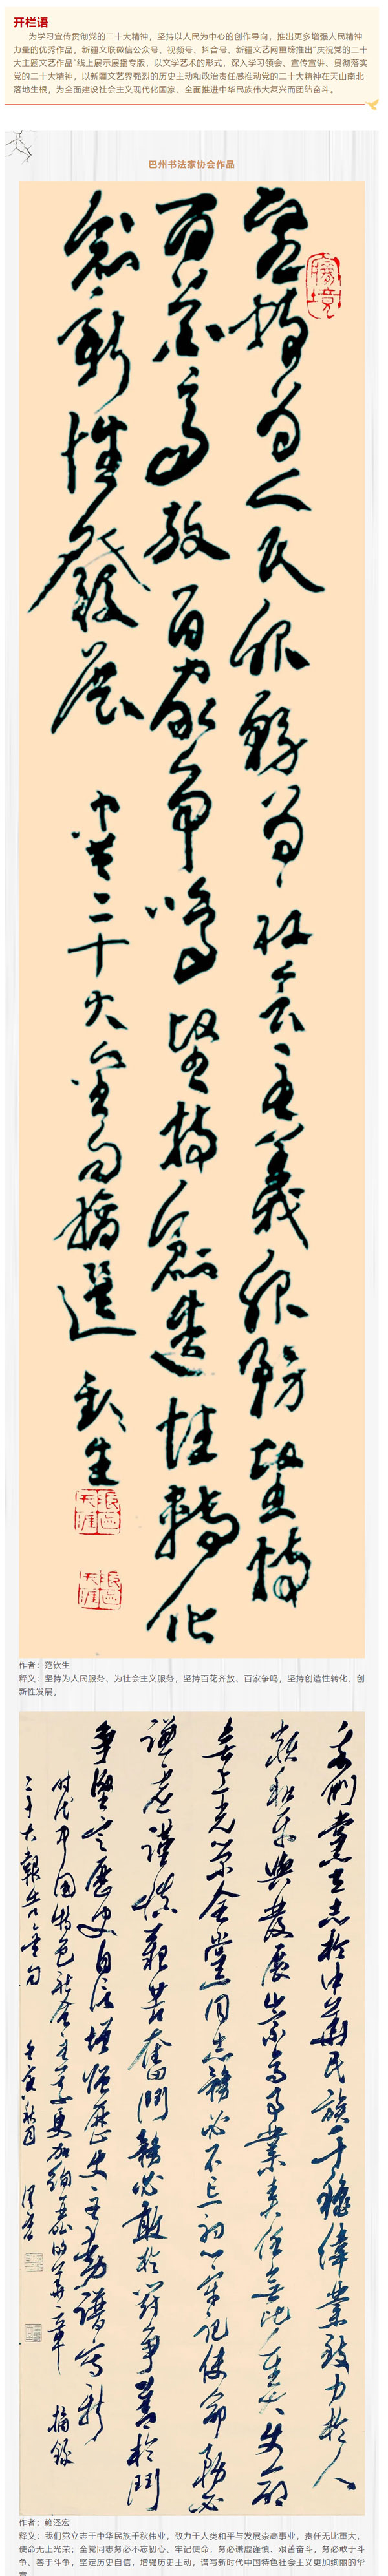 开栏语
为学习宣传贯彻党的二十大精神，坚持以人民为中心的创作导向，推出更多增强人民精神
力量的优秀作品，新疆文联微信公众号、视频号、抖音号、新疆文艺网重磅推出“庆祝党的二十
大主题文艺作品”线上展示展播专版，以文学艺术的形式，深入学习领会、宣传宣讲、贯彻落实
党的二十大精神，以新疆文艺界强烈的历史主动和政治责任感推动党的二十大精神在天山南北
落地生根，为全面建设社会主义现代化国家、全面推进中华民族伟大复兴而团结奋斗。
巴州书法家协会作品
坚持为人民服务为社会主义服务坚持
百花齐放百家争鸣坚持创造性转化
创新性发展
二十大
作者：范钦生
释义：坚持为人民服务、为社会主义服务，坚持百花齐放、百家争鸣，坚持创造性转化、创
新性发展。
我们党立志於中華民族千秋偉業致力於人
類和平與發展崇高事業責任無比重大使命
無上光榮全黨同志務必不忘初心牢記使命務必
謙虛謹慎艱苦奮鬥務必敢於鬥爭善於鬥
爭堅定歷史自信增強歷史主動譜寫新
時代中國特色社會主義更加絢麗的華章 摘錄
二十大報告金句
作者：赖泽宏
释义：我们党立志于中华民族千秋伟业，致力于人类和平与发展崇高事业，责任无比重大，
使命无上光荣；全党同志务必不忘初心、牢记使命，务必谦虚谨慎、艰苦奋斗，务必敢于斗
争、善于斗争，坚定历史自信，增强历史主动，谱写新时代中国特色社会主义更加绚丽的华